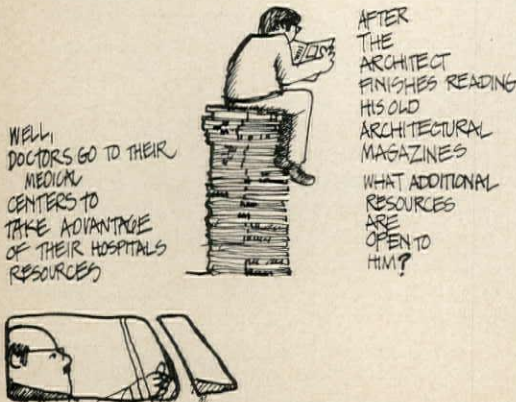 AFTER
THE
ARCHITECT
FINISHES READING
HIS OLD
ARCHITECTURAL
MAGAZINES
WHAT ADDITIONAL
RESOURCES
ARE
OPEN TO
HIM?
WELL,
DOCTORS GO TO THEIR
MEDICAL
CENTERS TO
TAKE ADVANTAGE
OF THEIR HOSPITALS
RESOURCES